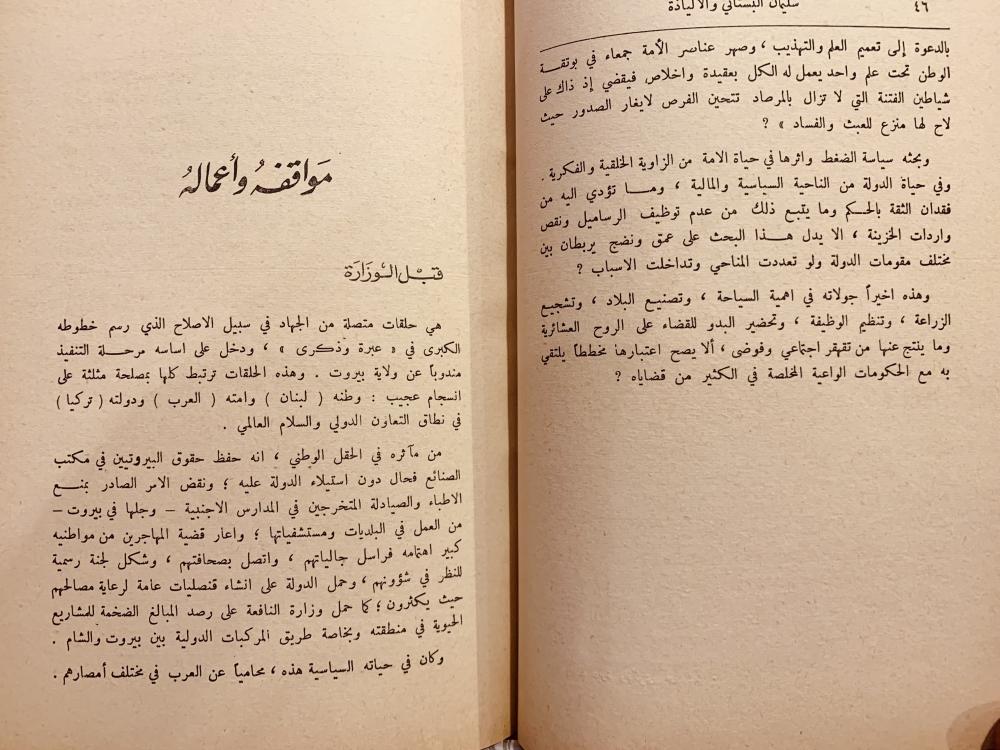 سليمان البستاني والالياذة
٤٦
بالدعوة إلى تعميم العلم والتهذيب ، وصهر عناصر الأمة جمعاء في بوتقة
الوطن تحت علم واحد يعمل له الكل بعقيدة واخلاص فيقضي إذ ذاك على
شياطين الفتنة التي لا تزال بالمرصاد تتحين الفرص لايغار الصدور حيث
لاح لها منزع للعبث والفساد » ?
وبحثه سياسة الضغط واثرها في حياة الامة من الزاوية الخلقية والفكرية .
وفي حياة الدولة من الناحية السياسية والمالية ، وما تؤدي اليه من
فقدان الثقة بالحكم وما يتبع ذلك من عدم توظيف الرساميل ونقص
واردات الخزينة ، الا يدل هذا البحث على عمق ونضج يربطان بين
مختلف مقومات الدولة ولو تعددت المناحي وتداخلت الاسباب ?
وهذه اخيراً جولاته في اهمية السياحة ، وتصنيع البلاد ، وتشجيع
الزراعة ، وتنظيم الوظيفة ، وتحضير البدو للقضاء على الروح العشائرية
وما ينتج عنها من تقهقر اجتماعي وفوضى ، ألا يصح اعتبارها مخططاً يلتقي
به مع الحكومات الواعية المخلصة في الكثير من قضاياه ?
مَواقفهُ وأعمالهُ
قبْل الوزَارَة
هي حلقات متصلة من الجهاد في سبيل الاصلاح الذي رسم خطوطه
الكبرى في « عبرة وذكرى » ، ودخل على اساسه مرحلة التنفيذ
مندوباً عن ولاية بيروت . وهذه الحلقات ترتبط كلها بمصلحة مثلثة على
انسجام عجيب : وطنه ( لبنان ) وامته ( العرب ) ودولته ( تركيا )
في نطاق التعاون الدولي والسلام العالمي .
من مآثره في الحقل الوطني ، انه حفظ حقوق البيروتيين في مكتب
الصنائع فحال دون استيلاء الدولة عليه ؛ ونقض الامر الصادر بمنع
الاطباء والصيادلة المتخرجين في المدارس الاجنبية – وجلها في بيروت –
من العمل في البلديات ومستشفياتها ؛ واعار قضية المهاجرين من مواطنيه
كبير اهتمامه فراسل جالياتهم ، واتصل بصحافتهم ، وشكل لجنة رسمية
للنظر في شؤونهم ، وحمل الدولة على انشاء قنصليات عامة لرعاية مصالحهم
حيث يكثرون ؛ كما حمل وزارة النافعة على رصد المبالغ الضخمة للمشاريع
الحيوية في منطقته وبخاصة طريق المركبات الدولية بين بيروت والشام .
وكان في حياته السياسية هذه ، محامياً عن العرب في مختلف أمصارهم .